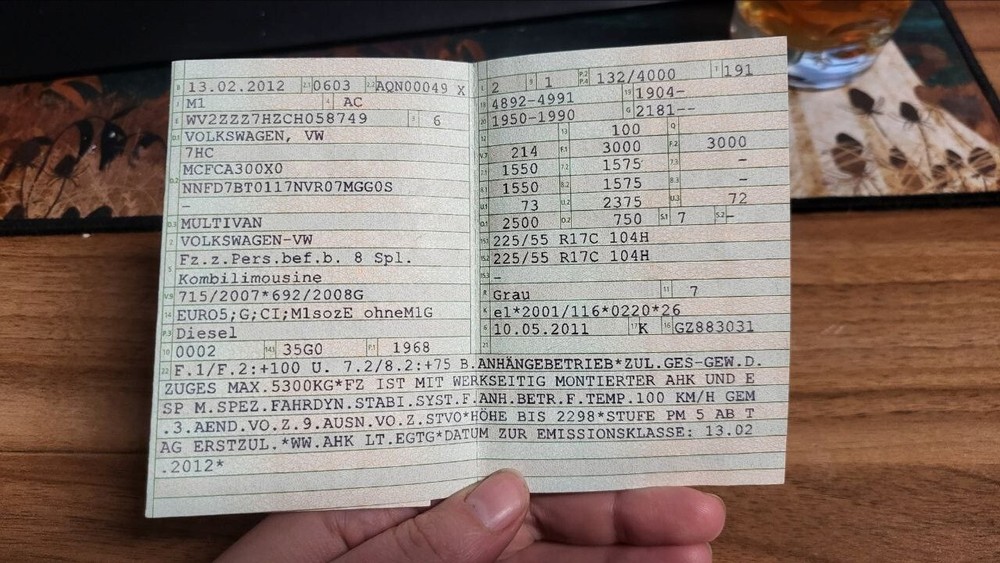 B 13.02.2012 2.1 0603 2.2 AQN00049 X
J M1 4 AC
E WV2ZZZ7HZCH058749 3 6
D.1 VOLKSWAGEN, VW
7HC
D.2 MCFCA300X0
NNFD7BT0117NVR07MGG0S
–
D.3 MULTIVAN
2 VOLKSWAGEN-VW
5 Fz.z.Pers.bef.b. 8 Spl.
Kombilimousine
V.9 715/2007*692/2008G
14 EURO5;G;CI;M1sozE ohneM1G
P.3 Diesel
10 0002 14.1 35G0 P.1 1968
L 2 9 1 P.2 P.4 132/4000 T 191
18 4892-4991 19 1904–
20 1950-1990 G 2181--
12 13 100 Q
V.7 214 F.1 3000 F.2 3000
7.1 1550 7.2 1575 7.3 –
8.1 1550 8.2 1575 8.3 –
U.1 73 U.2 2375 U.3 72
O.1 2500 O.2 750 S.1 7 S.2 –
15.1 225/55 R17C 104H
15.2 225/55 R17C 104H
15.3 –
R Grau 11 7
K e1*2001/116*0220*26
6 10.05.2011 17 K 16 GZ883031
21
22 F.1/F.2:+100 U. 7.2/8.2:+75 B.ANHÄNGEBETRIEB*ZUL.GES-GEW.D.
ZUGES MAX.5300KG*FZ IST MIT WERKSEITIG MONTIERTER AHK UND E
SP M.SPEZ.FAHRDYN.STABI.SYST.F.ANH.BETR.F.TEMP.100 KM/H GEM
.3.AEND.VO.Z.9.AUSN.VO.Z.STVO*HÖHE BIS 2298*STUFE PM 5 AB T
AG ERSTZUL.*WW.AHK LT.EGTG*DATUM ZUR EMISSIONSKLASSE: 13.02
.2012*